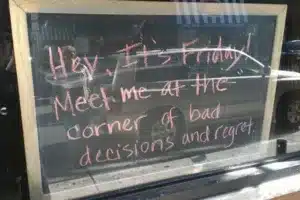 Hey, It's Friday!
Meet me at the
corner of bad
decisions and regret.